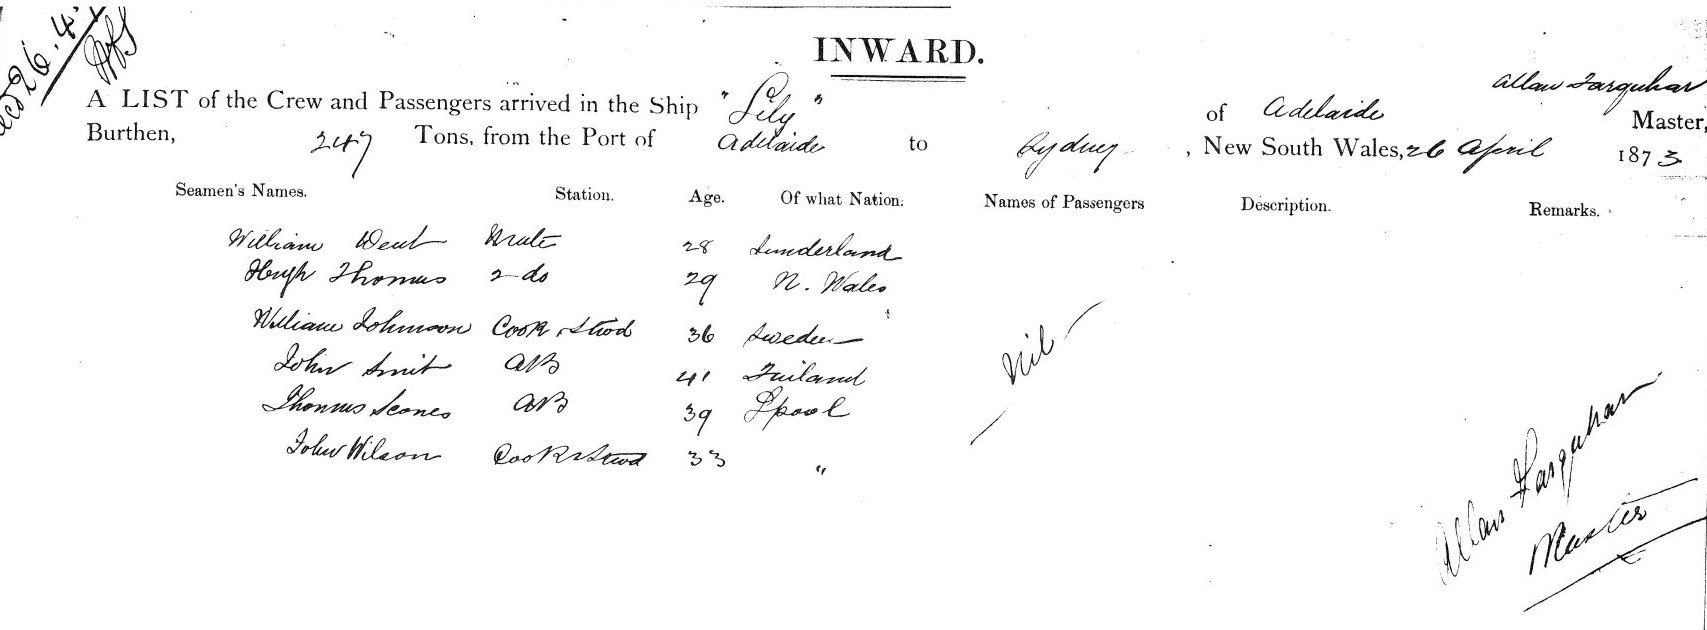 recd 26.4.
INWARD.
Allan Farquhar
A LIST of the Crew and Passengers arrived in the Ship "Lily" of Adelaide Master,
Burthen, 247 Tons, from the Port of Adelaide to Sydney, New South Wales, 26 April 1873
Seamen's Names. Station. Age. Of what Nation. Names of Passengers Description. Remarks.
William Went Mate 28 Sunderland
Hugh Thomas 2 do 29 N. Wales
William Johnson Cook & Stwd 36 Sweden
John Smit AB 41 Finland
Thomas Scones AB 39 Lpool
John Wilson Cook & Stwd 33 "
Nil
Allan Farquhar
Master